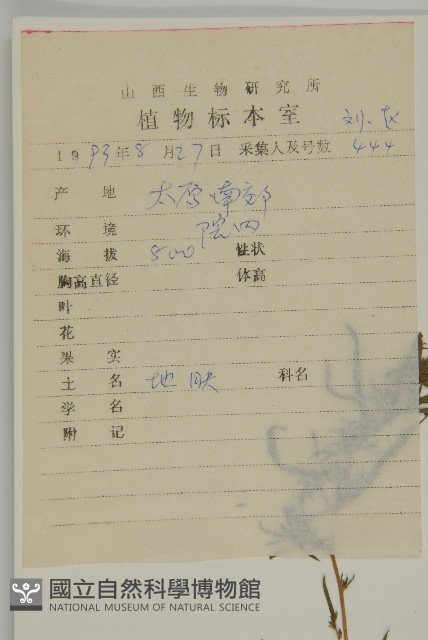 山西生物研究所
植物标本室
1993年8月27日 采集人及号数 444
产地 太原南郊
环境 院内
海拔 800 性状
胸高直径 体高
叶
花
果实
土名 地肤 科名
学名
附记
國立自然科學博物館
NATIONAL MUSEUM OF NATURAL SCIENCE